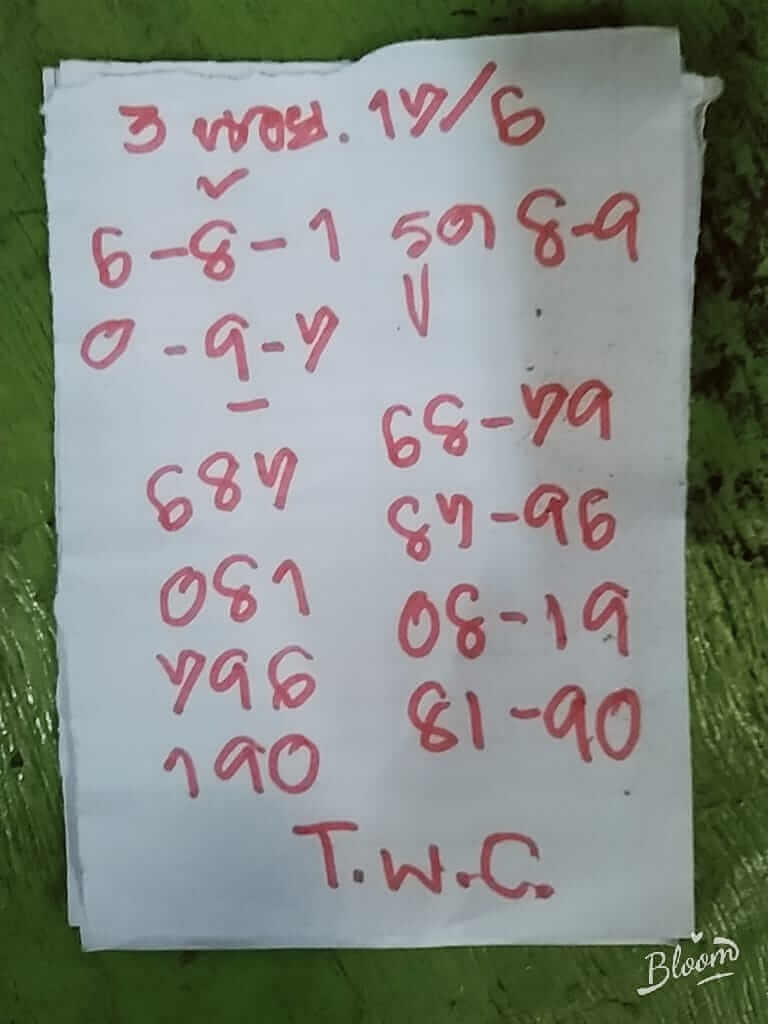 3 . 17/6
6-8-1 รูด 8-9
0-9-7
687 68-79
081 87-96
796 08-19
190 81-90
T.W.C.
Bloom